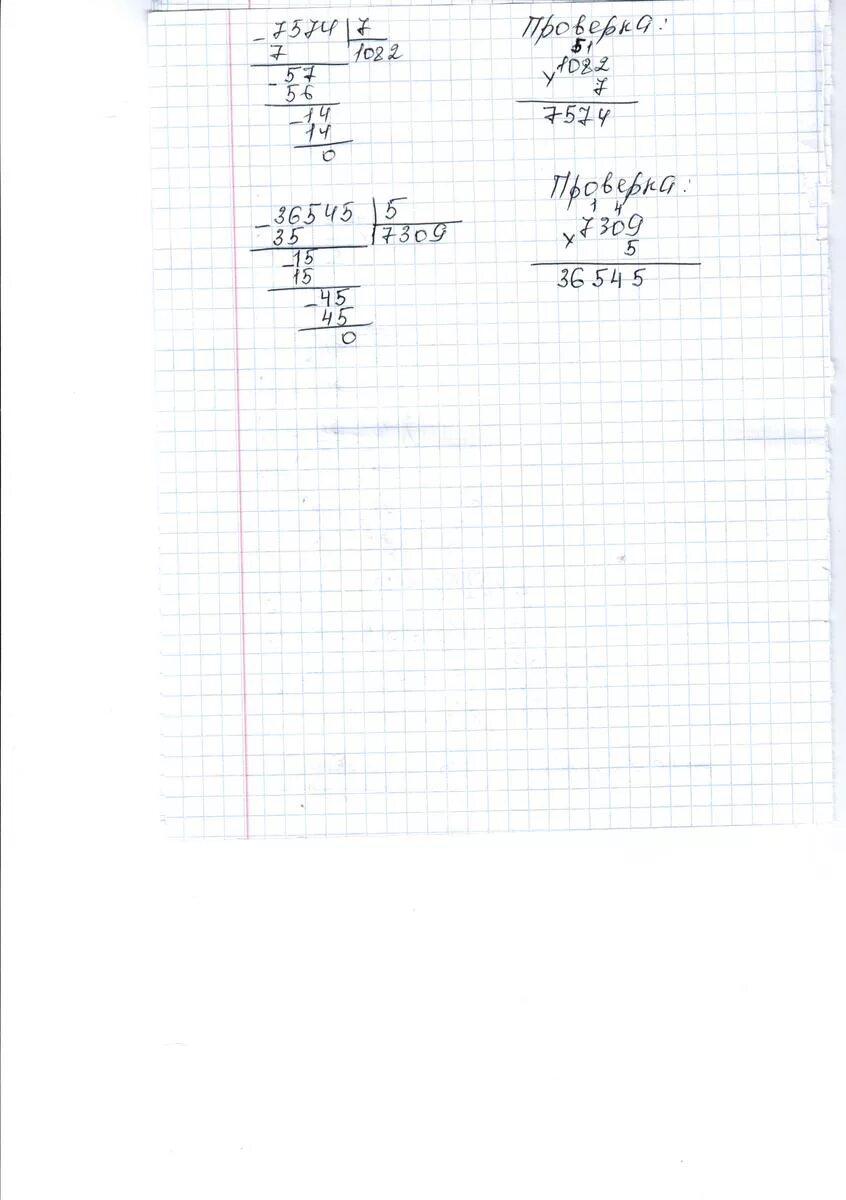 - 7574 | 7
7 1082
- 57
56
- 14
14
0
Проверка:
51
x 1082
7
7574
- 36545 | 5
35 7309
- 15
15
- 45
45
0
Проверка:
1 4
x 7309
5
36545